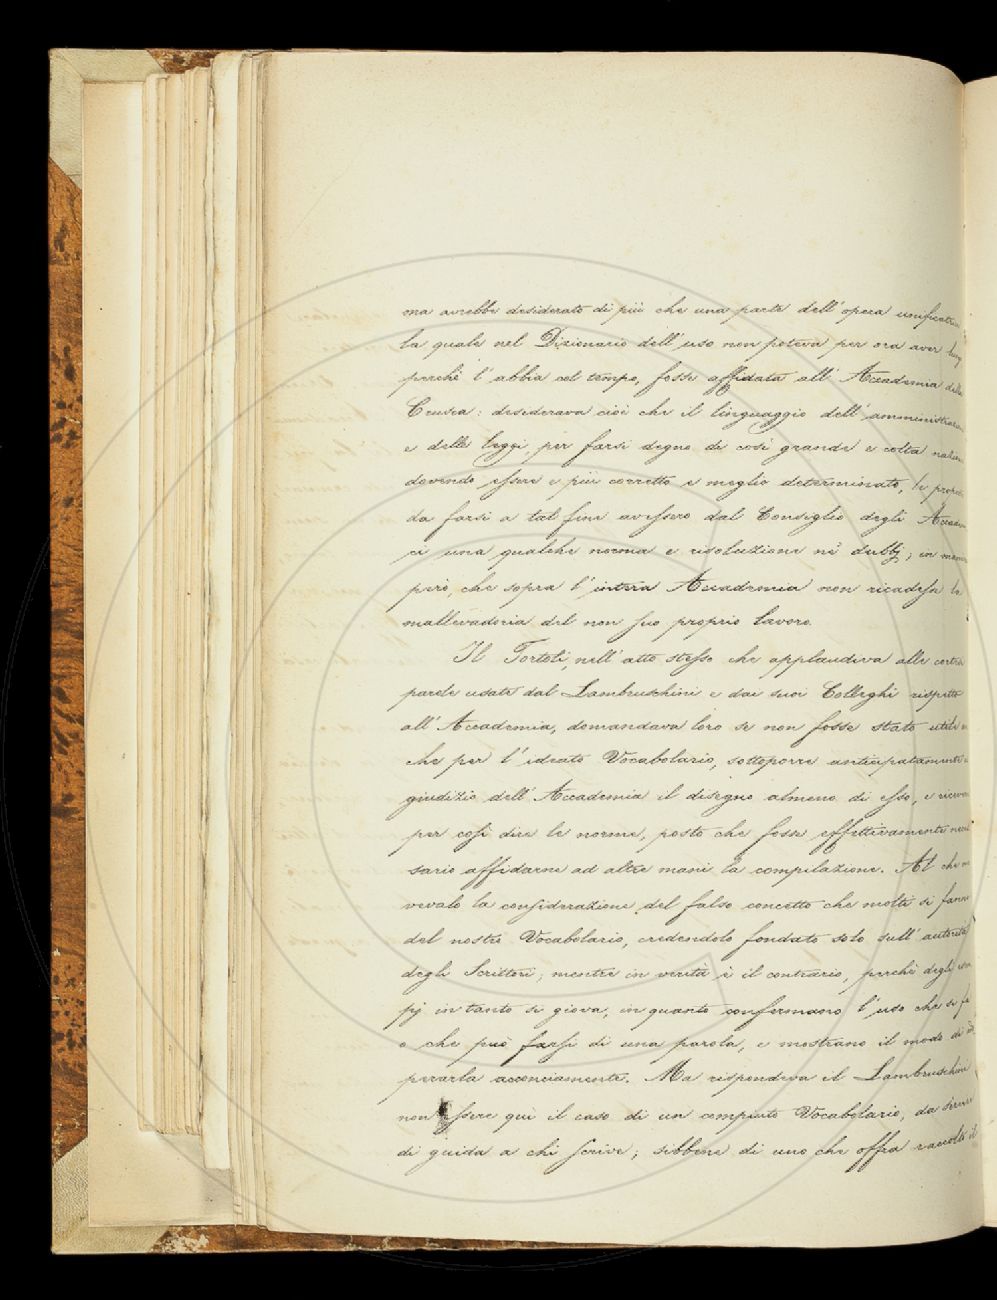 ma avrebbe desiderato di più che una parte dell'opera unificatri
la quale nel Dizionario dell'uso non poteva per ora aver luog
perchè l'abbia col tempo, fosse affidata all'Accademia della
Crusca: desiderava cioè che il linguaggio dell'amministrazion
e delle leggi, per farsi degno di così grande e colta nazion
dovendo essere e più corretto e meglio determinato, le propost
da farsi a tal fine avessero dal Consiglio degli Accadem
ci una qualche norma e risoluzione nè dubbj; in manier
però, che sopra l'intera Accademia non ricadesse la
mallevadoria del non suo proprio lavoro.
Il Tortoli, nell'atto stesso che applaudiva alle cortesi
parole usate dal Lambruschini e dai suoi Colleghi rispetto
all'Accademia, domandava loro se non fosse stato utile
che per l'ideato Vocabolario, sottoporre anticipatamente
giudizio dell'Accademia il disegno almeno di esso, e ricever
per così dire le norme, posto che fosse effettivamente neces
sario affidarne ad altre mani la compilazione. Al che
vevalo la considerazione del falso concetto che molti si fanno
del nostro Vocabolario, credendolo fondato solo sull'autorità
degli Scrittori; mentre in verità è il contrario, perchè degli esem
pj in tanto si giova, in quanto confermano l'uso che si fa
o che può farsi di una parola, e mostrano il modo di
perarla acconciamente. Ma rispondeva il Lambruschini
non essere qui il caso di un compiuto Vocabolario, da servire
di guida a chi scrive; sibbene di uno che offra raccolte il